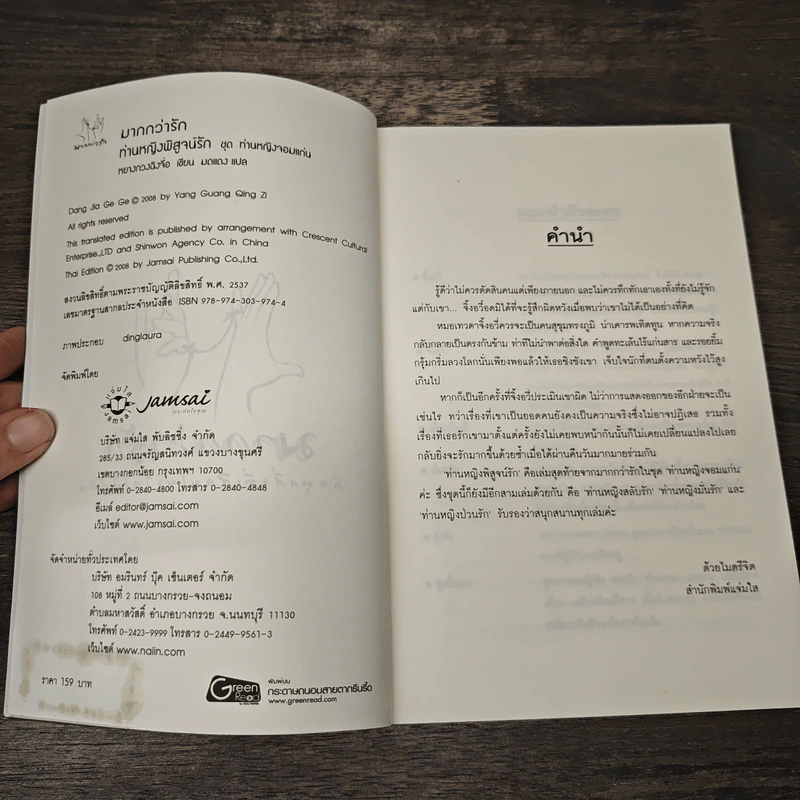 มากกว่ารัก
มากกว่ารัก
ท่านหญิงพิสูจน์รัก ชุด ท่านหญิงจอมแก่น
หยางกวงฉิงจื่อ เขียน มดแดง แปล
Dang Jia Ge Ge © 2008 by Yang Guang Qing Zi
All rights reserved
This translated edition is published by arrangement with Crescent Cultural
Enterprise.,LTD and Shinwon Agency Co. in China
Thai Edition © 2008 by Jamsai Publishing Co.,Ltd.
สงวนลิขสิทธิ์ตามพระราชบัญญัติลิขสิทธิ์ พ.ศ. 2537
เลขมาตรฐานสากลประจำหนังสือ ISBN 978-974-303-974-4
ภาพประกอบ dinglaura
จัดพิมพ์โดย
แจ่มใส
jamsai
Jamsai
บริษัท แจ่มใส พับลิชชิ่ง จำกัด
285/33 ถนนจรัญสนิทวงศ์ แขวงบางขุนศรี
เขตบางกอกน้อย กรุงเทพฯ 10700
โทรศัพท์ 0-2840-4800 โทรสาร 0-2840-4848
อีเมล์ editor@jamsai.com
เว็บไซต์ www.jamsai.com
จัดจำหน่ายทั่วประเทศโดย
บริษัท อมรินทร์ บุ๊ค เซ็นเตอร์ จำกัด
108 หมู่ที่ 2 ถนนบางกรวย-จงถนอม
ตำบลมหาสวัสดิ์ อำเภอบางกรวย จ.นนทบุรี 11130
โทรศัพท์ 0-2423-9999 โทรสาร 0-2449-9561-3
เว็บไซต์ www.naiin.com
ราคา 159 บาท
Green
Read
พิมพ์บน
กระดาษถนอมสายตากรีนรี้ด
www.greenread.com
คำนำ
รู้ดีว่าไม่ควรตัดสินคนแต่เพียงภายนอก และไม่ควรทึกทักเอาเองทั้งที่ยังไม่รู้จัก
แต่กับเขา... จิ้งอวี๋อดมิได้ที่จะรู้สึกผิดหวังเมื่อพบว่าเขาไม่ได้เป็นอย่างที่คิด
หมอเทวดาจิ้งอวี๋ควรจะเป็นคนสุขุมทรงภูมิ น่าเคารพเทิดทูน หากความจริง
กลับกลายเป็นตรงกันข้าม ท่าทีไม่นำพาต่อสิ่งใด คำพูดทะเล้นไร้แก่นสาร และรอยยิ้ม
กรุ้มกริ่มลวงโลกนั่นเพียงพอแล้วให้เธอชิงชังเขา เจ็บใจนักที่ตนตั้งความหวังไว้สูง
เกินไป
หากก็เป็นอีกครั้งที่จิ้งอวี๋ประเมินเขาผิด ไม่ว่าการแสดงออกของอีกฝ่ายจะเป็น
เช่นไร ทว่าเรื่องที่เขาเป็นยอดคนยังคงเป็นความจริงซึ่งไม่อาจปฏิเสธ รวมทั้ง
เรื่องที่เธอรักเขามาตั้งแต่ครั้งยังไม่เคยพบหน้ากันนั้นก็ไม่เคยเปลี่ยนแปลงไปเลย
กลับยิ่งจะรักมากขึ้นด้วยซ้ำเมื่อได้ผ่านคืนวันมากมายร่วมกัน
'ท่านหญิงพิสูจน์รัก' คือเล่มสุดท้ายจากมากกว่ารักในชุด 'ท่านหญิงจอมแก่น'
ค่ะ ซึ่งชุดนี้ก็ยังมีอีกสามเล่มด้วยกัน คือ 'ท่านหญิงสลับรัก' 'ท่านหญิงมั่นรัก' และ
'ท่านหญิงป่วนรัก' รับรองว่าสนุกสนานทุกเล่มค่ะ
ด้วยไมตรีจิต
สำนักพิมพ์แจ่มใส